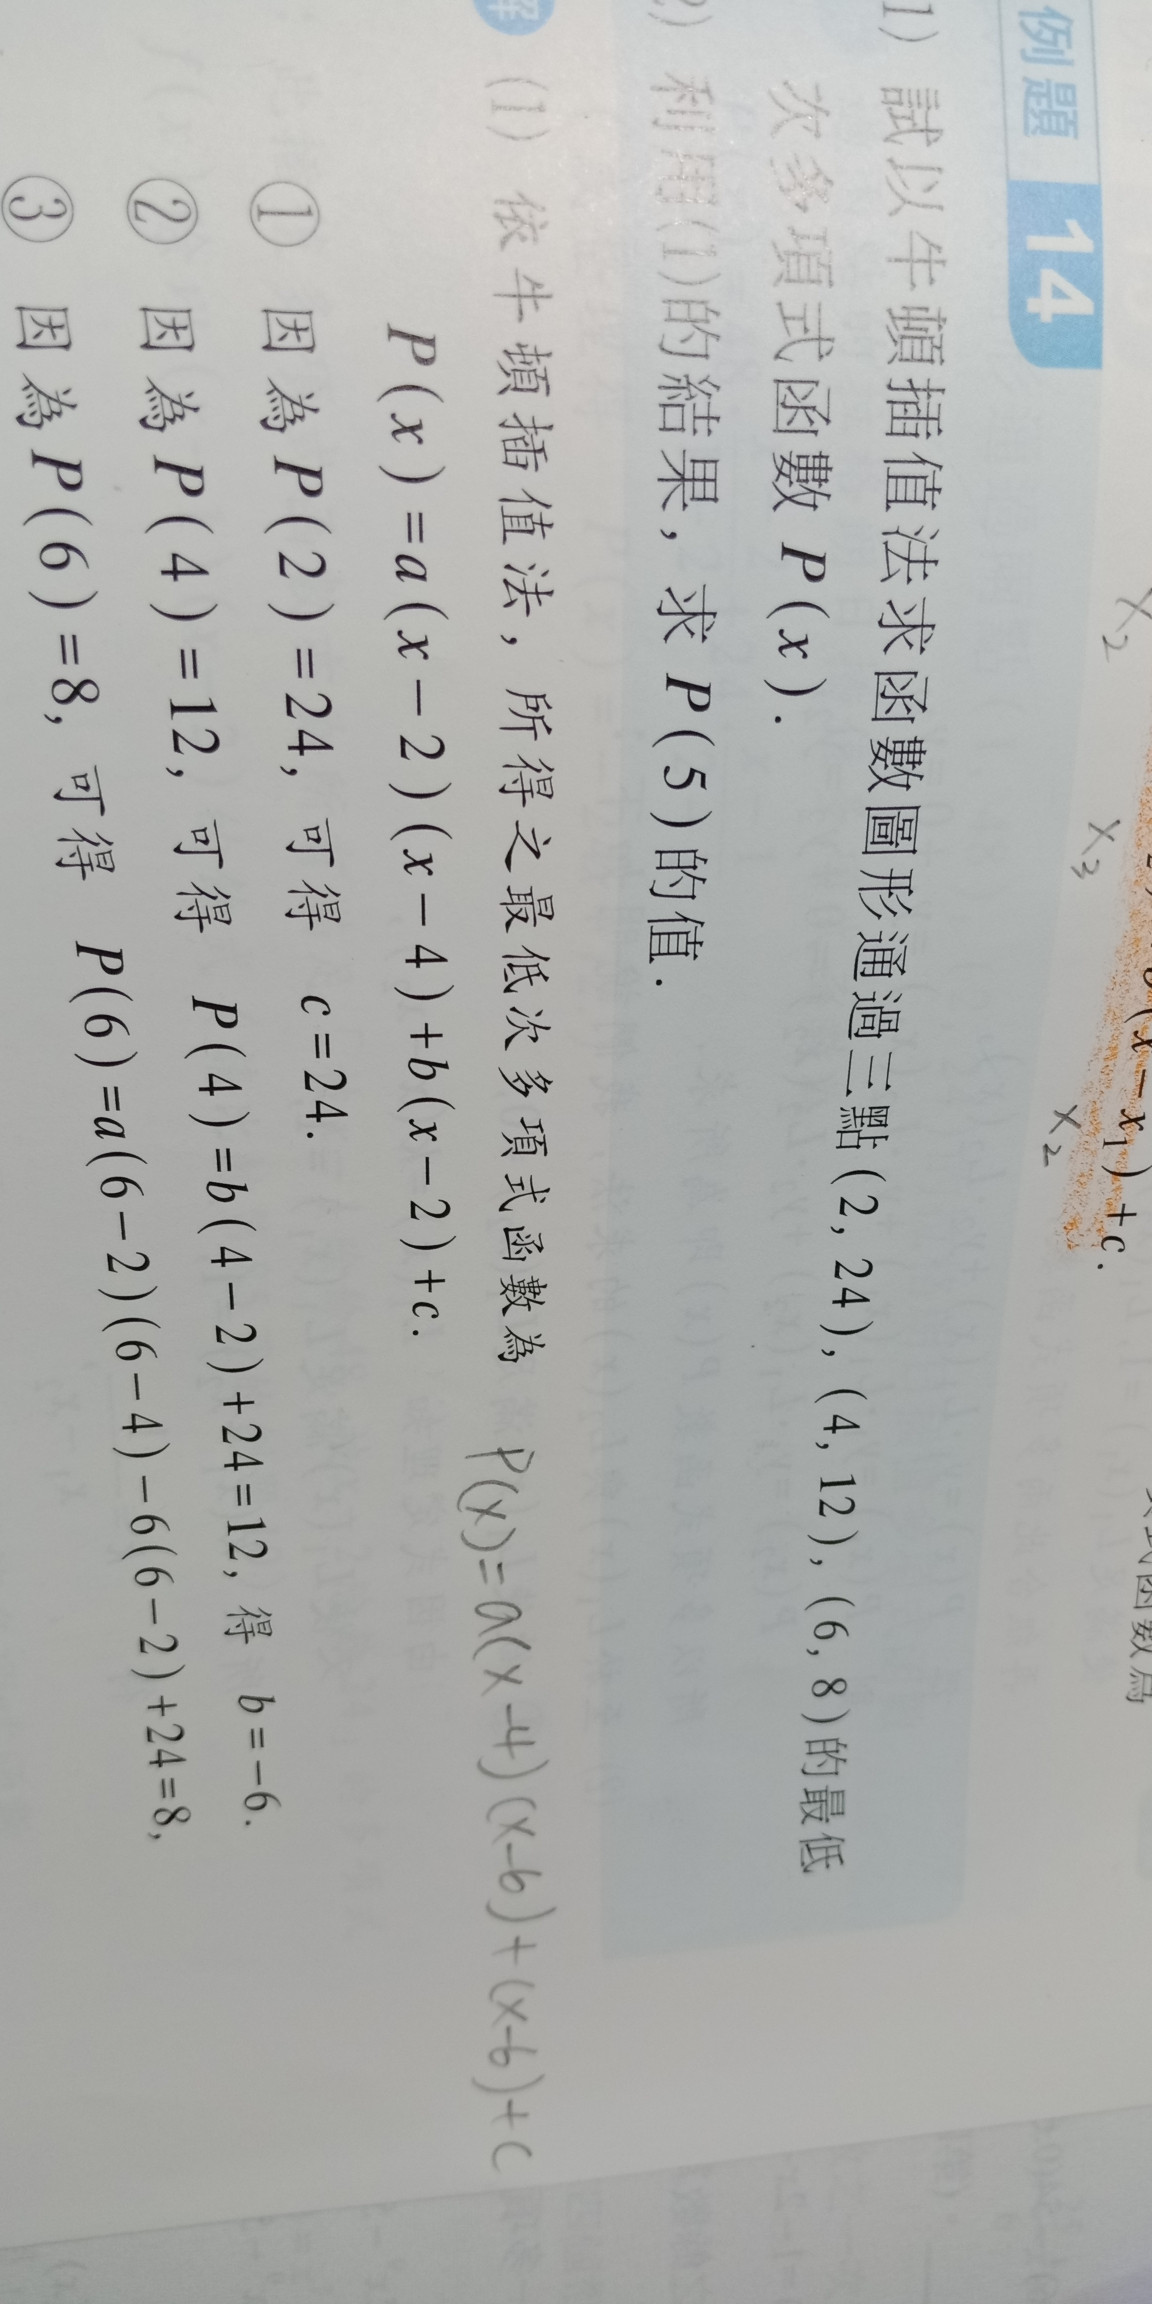 x₂
x₃
(x-x₁)+c.
x₂
例題 14
1) 試以牛頓插值法求函數圖形通過三點(2, 24), (4, 12), (6, 8)的最低
次多項式函數 P(x).
2) 利用(1)的結果, 求 P(5)的值.
解 (1) 依牛頓插值法, 所得之最低次多項式函數為 P(x)=a(x-4)(x-6)+(x-6)+c
P(x)=a(x-2)(x-4)+b(x-2)+c.
① 因為 P(2)=24, 可得 c=24.
② 因為 P(4)=12, 可得 P(4)=b(4-2)+24=12, 得 b=-6.
③ 因為 P(6)=8, 可得 P(6)=a(6-2)(6-4)-6(6-2)+24=8,